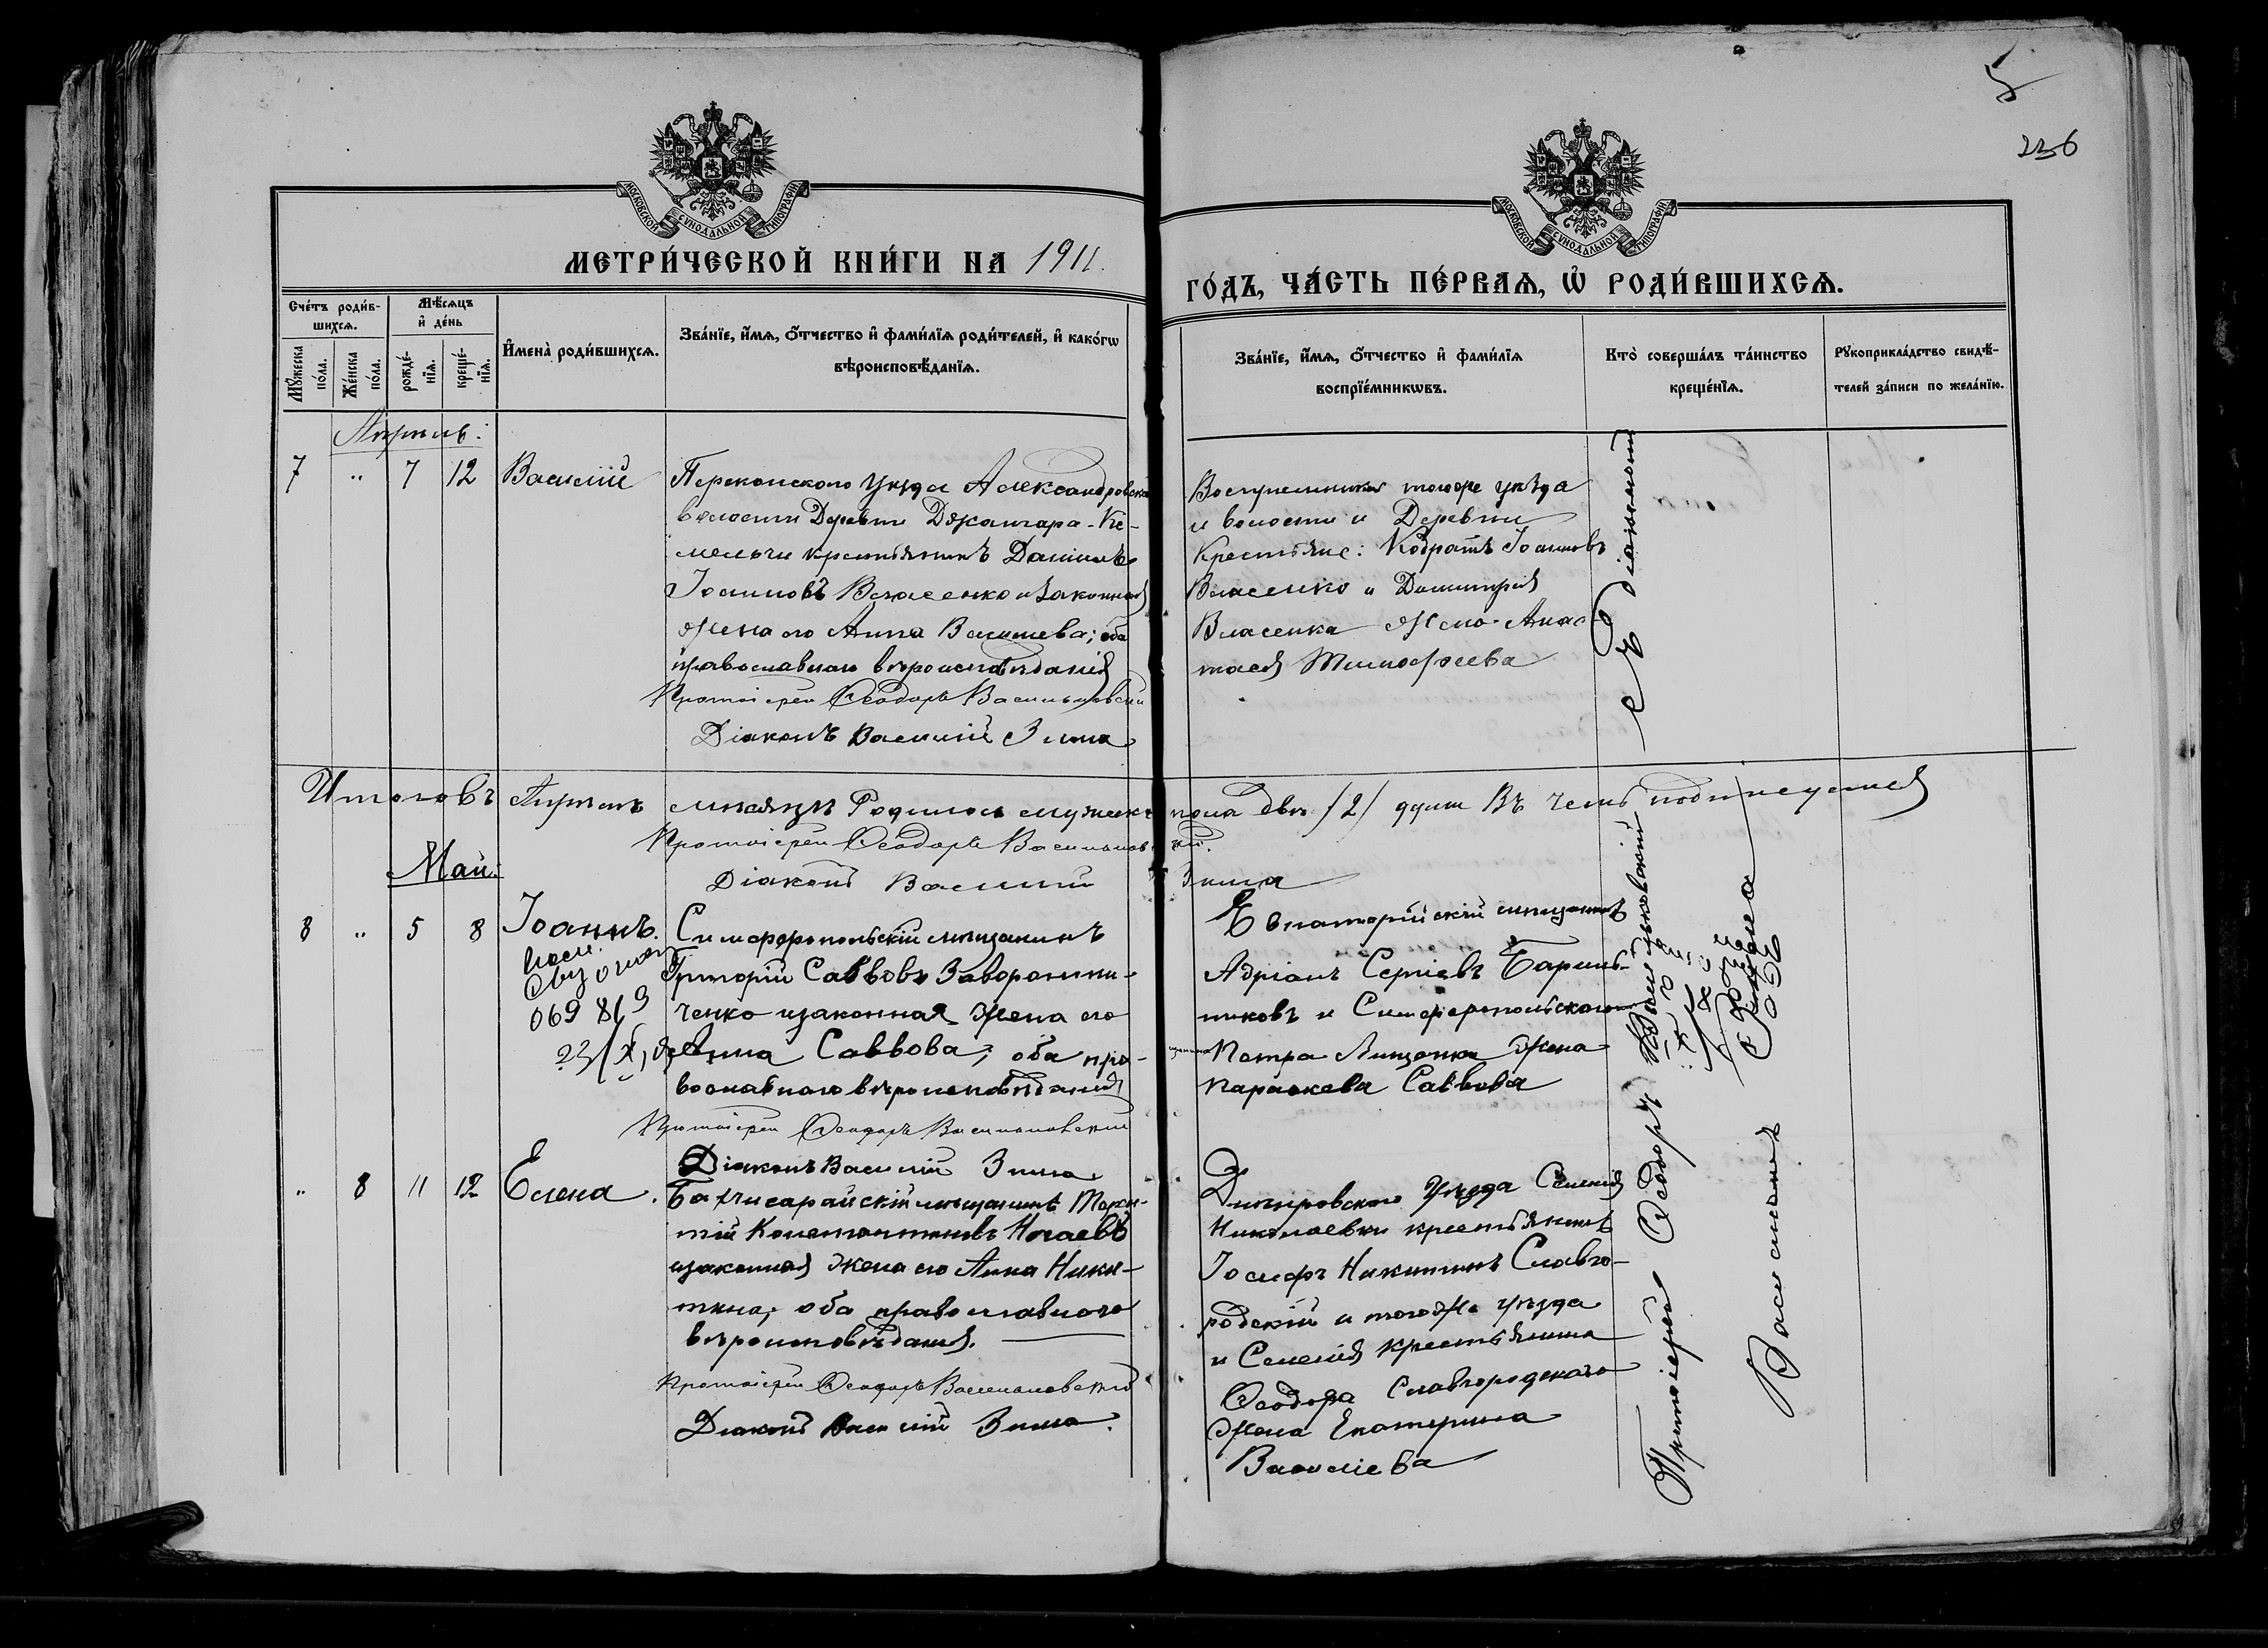 5
236
МОСКОВСКОЙ СѴНОДАЛЬНОЙ ТИПОГРАФІИ
МОСКОВСКОЙ СѴНОДАЛЬНОЙ ТИПОГРАФІИ
МЕТРИ́ЧЕСКОЙ КНИ́ГИ НА 1911.
ГО́ДЪ, ЧА́СТЬ ПЕ́РВАѦ, Ѡ҆ РОДИ́ВШИХСѦ.
Сче́тъ роди́в-
шихсѧ.
Мѣ́сѧцъ
и҆ де́нь
Мꙋ́жеска
по́ла.
Же́нска
по́ла.
рожде́-
нїѧ.
креще́-
нїѧ.
И҆мена̀ роди́вшихсѧ.
Зва́нїе, и҆́мѧ, ѻ҆́тчество и҆ фами́лїѧ роди́телей, и҆ како́гѡ
вѣроисповѣ́данїѧ.
Зва́нїе, и҆́мѧ, ѻ҆́тчество и҆ фами́лїѧ
воспрїе́мникѡвъ.
Кто̀ соверша́лъ та́инство
креще́нїѧ.
Рꙋкоприкла́дство свидѣ́-
телей за́писи по жела́нїю.
Апрѣль:
7 " 7 12 Василій
Перекопскаго Уѣзда Александровской
волости Деревни Джангара-Ке-
мельчи крестьянинъ Даніилъ
Іоанновъ Власенко и законная
жена его Анна Васильева; оба
православнаго вѣроисповѣданія
Протоіерей Ѳеодоръ Васильковскій
Діаконъ Василій Зима
Воспріемники тогоже уѣзда
и волости и Деревни
Крестьяне: Кодратъ Іоанновъ
Власенко и Димитрія
Власенка жена Анас-
тасія Тимофеева
съ діакономъ
Итого въ Апрѣлѣ мѣсяцѣ Родилось мужеск. пола два /2/ души Въ чемъ подписуемся
Протоіерей Ѳеодоръ Васильковскій.
Діаконъ Василій Зима
Май:
8 " 5 8 Іоаннъ.
069 869
Симферопольскій мѣщанинъ
Григорій Саввовъ Заворотни-
ченко и законная жена его
Анна Саввова; оба пра-
вославнаго вѣроисповѣданія
Протоіерей Ѳеодоръ Васильковскій
Діаконъ Василій Зима
Евпаторійскій мѣщанинъ
Адріанъ Сергіевъ Бариль-
никовъ и Симферопольскаго
мѣщанина Петра Лищенка Жена
Параскева Саввова
" 8 11 12 Елена.
Бахчисарайскій мѣщанинъ
Константиновъ Ногаевъ
и законная жена его Анна Ники-
тина; оба православнаго
вѣроисповѣданія.
Протоіерей Ѳеодоръ Васильковскій
Діаконъ Василій Зима.
Днѣпровскаго Уѣзда Селенія
Николаевки крестьянинъ
Іосифъ Никитинъ Славго-
родскій и тогоже уѣзда
и Селенія Крестьянина
Ѳеодора Славгородскаго
Жена Екатерина
Василіева
Протоіерей Ѳеодоръ Васильковскій
Василіемъ Зима